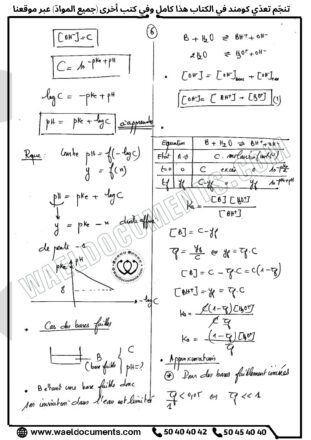 تنجّم تعدّي كومند في الكتاب هذا كامل وفي كتب أخرى (جميع الموادّ) عبر موقعنا
[OH⁻] = C
C = 10^(-pKe+pH)
log C = -pKe + pH
pH = pKe + log C à apprendre
Rque: Courbe pH = f(-log C)
y = f(x)
pH = pKe + log C
y = pKe - x droite affine
de pente -1
pH
pKe
8
-log C
• Cas des bases faibles
B (base faible) { C
pH = ?
B étant une base faible donc
son ionisation dans l'eau est limitée
6
B + H₂O ⇌ BH⁺ + OH⁻
2H₂O ⇌ H₃O⁺ + OH⁻
[OH⁻] = [OH⁻]base + [OH⁻]eau
[OH⁻] = [BH⁺] + [H₃O⁺] (1)
Equation B + H₂O ⇌ BH⁺ + OH⁻
t=0 C excès
tf C-yf yf
Ka = [B][H₃O⁺] / [BH⁺]
[B] = C - yf
τf = yf/C ⇔ yf = τf.C
[B] = C - τf.C = C(1-τf)
[BH⁺] = yf = τf.C
Ka = C(1-τf)[H₃O⁺] / C τf
Ka = (1-τf)[H₃O⁺] / τf
• Approximations
* Pour des bases faiblement ionisées
τf < 0,05 ⇔ τf << 1
WAELDOCUMENTS.COM
www.waeldocuments.com
50 40 40 42
50 45 40 40